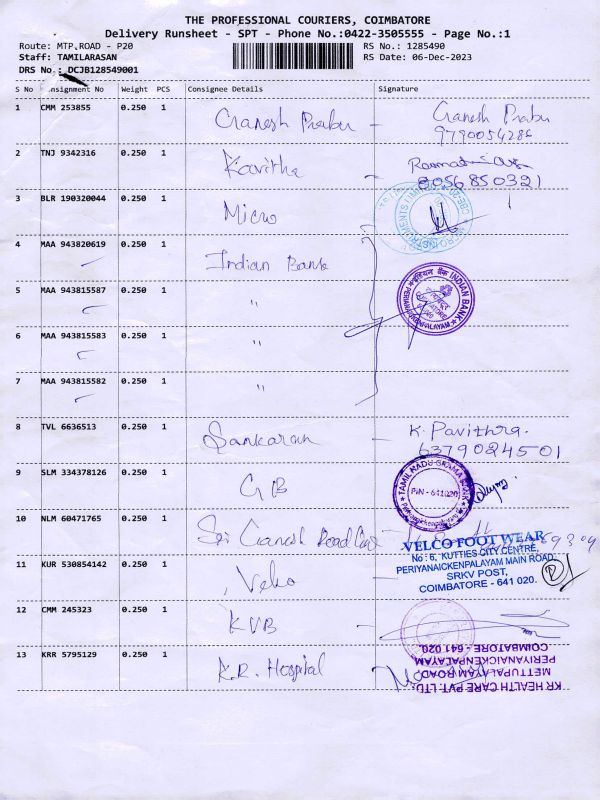 THE PROFESSIONAL COURIERS, COIMBATORE
Delivery Runsheet - SPT - Phone No.:0422-3505555 - Page No.:1
Route: MTP,ROAD - P20
RS No.: 1285490
Staff: TAMILARASAN
RS Date: 06-Dec-2023
DRS No : DCJB128549001
S No Consignment No Weight PCS Consignee Details Signature
1 CMM 253855 0.250 1 Ganesh Prabu - Ganesh Prabu
9790054286
2 TNJ 9342316 0.250 1 Kavitha -
8056850321
3 BLR 190320044 0.250 1 Micro
4 MAA 943820619 0.250 1 Indian Bank
INDIAN BANK
PERIANAICKENPALAYAM
5 MAA 943815587 0.250 1 "
6 MAA 943815583 0.250 1 "
7 MAA 943815582 0.250 1 "
8 TVL 6636513 0.250 1 Sankaran - K. Pavithra.
6379024501
9 SLM 334378126 0.250 1 GB
TAMIL NADU GRAMA BANK
PIN - 641020
10 NLM 60471765 0.250 1 Sri Ganesh Road
11 KUR 530854142 0.250 1 Velco
VELCO FOOT WEAR
No: 6, KUTTIES CITY CENTRE,
PERIYANAICKENPALAYAM MAIN ROAD
SRKV POST,
COIMBATORE - 641 020.
12 CMM 245323 0.250 1 KVB -
13 KRR 5795129 0.250 1 K.R. Hospital
KR HEALTH CARE PVT. LTD.
METTUPALAYAM ROAD
PERIYANAICKENPALAYAM
COIMBATORE - 641 020.